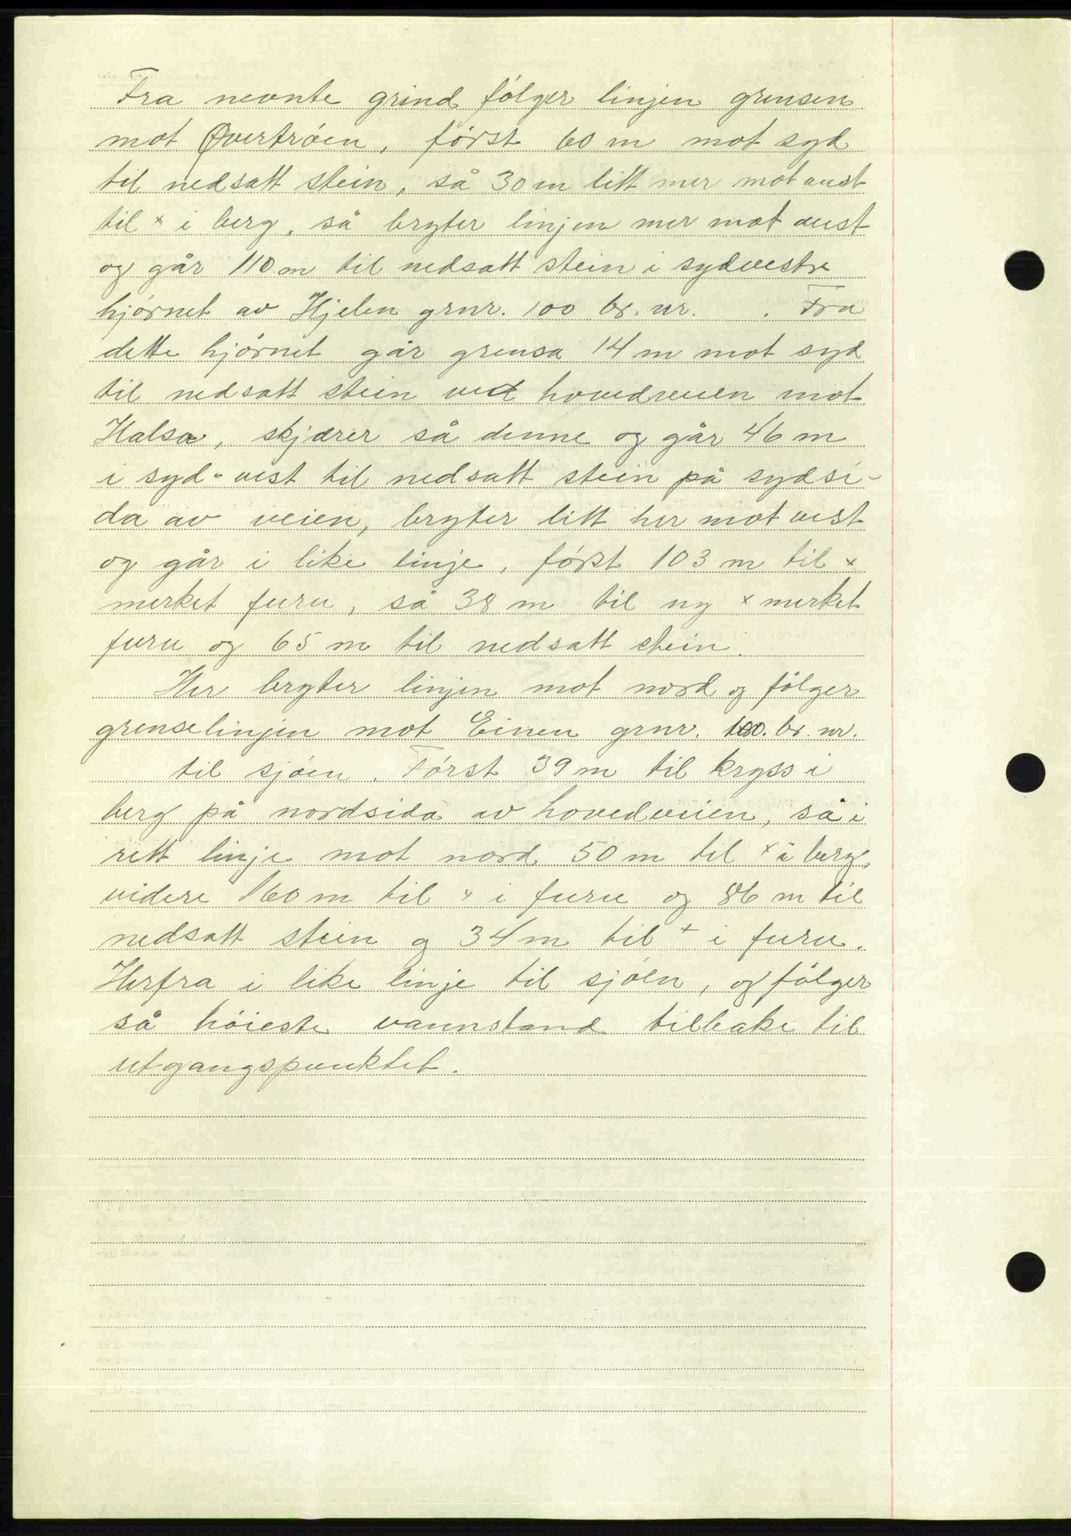 Fra nevnte grind følger linjen grensen
mot Øvertrøen, først 60 m mot syd
til nedsatt stein, så 30 m litt mer mot aust
til x i berg, så bryter linjen mer mot aust
og går 110 m til nedsatt stein i sydvestre
hjørnet av Hjelen grnr. 100 br. nr. . Fra
dette hjørnet går grensa 14 m mot syd
til nedsatt stein ved hovedveien mot
Halsa, skjærer så denne og går 46 m
i syd-vest til nedsatt stein på sydsi-
da av veien, bryter litt her mot vest
og går i like linje, først 103 m til x
merket furu, så 38 m til ny x merket
furu og 65 m til nedsatt stein.
Her bryter linjen mot nord og følger
grenselinjen mot Einen grnr. 100. br. nr.
til sjøen. Først 39 m til kryss i
berg på nordsida av hovedveien, så i
rett linje mot nord 50 m til x i berg,
videre 160 m til x i furu og 86 m til
nedsatt stein og 34 m til x i furu.
Herfra i like linje til sjøen, og følger
så høieste vannstand tilbake til
utgangspunktet.